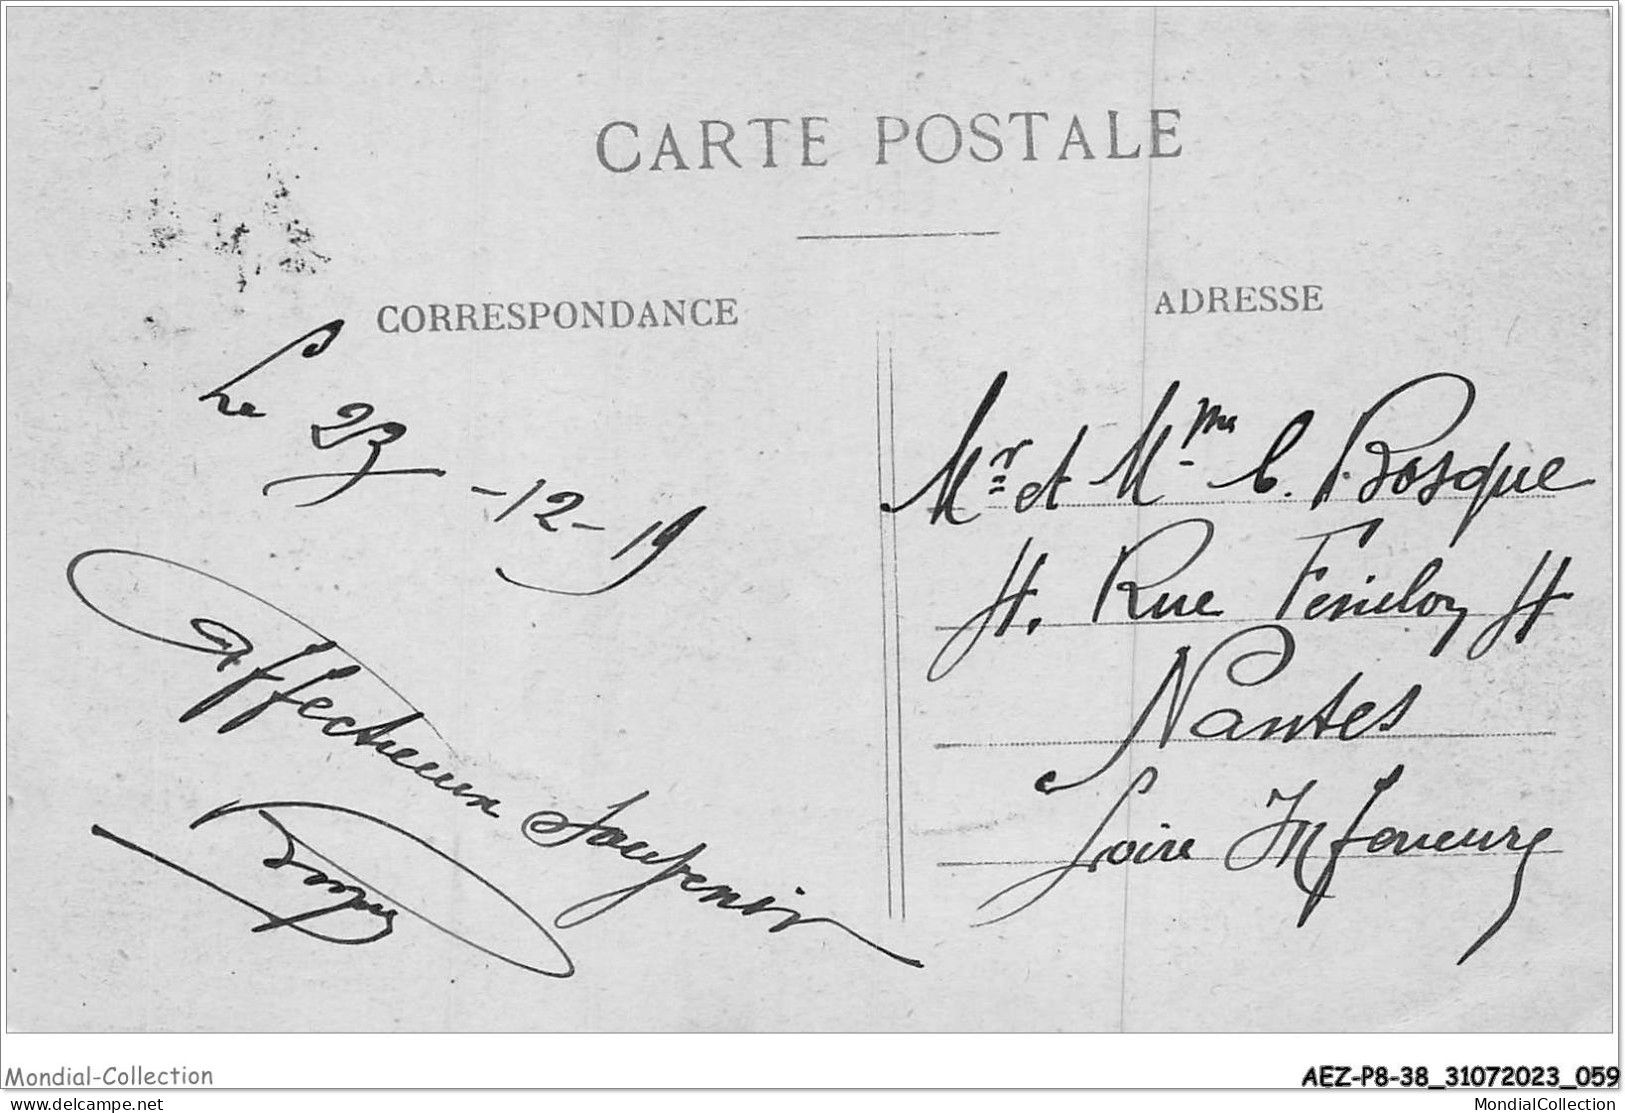 CARTE POSTALE
CORRESPONDANCE
ADRESSE
Le 23 -12-19
Affectueux Souvenir
Mr et Mme C. Bosque
4. Rue Fénelon 4
Nantes
Loire Inferieure
Mondial-Collection
AEZ-P8-38_31072023_059
delcampe.net
MondialCollection